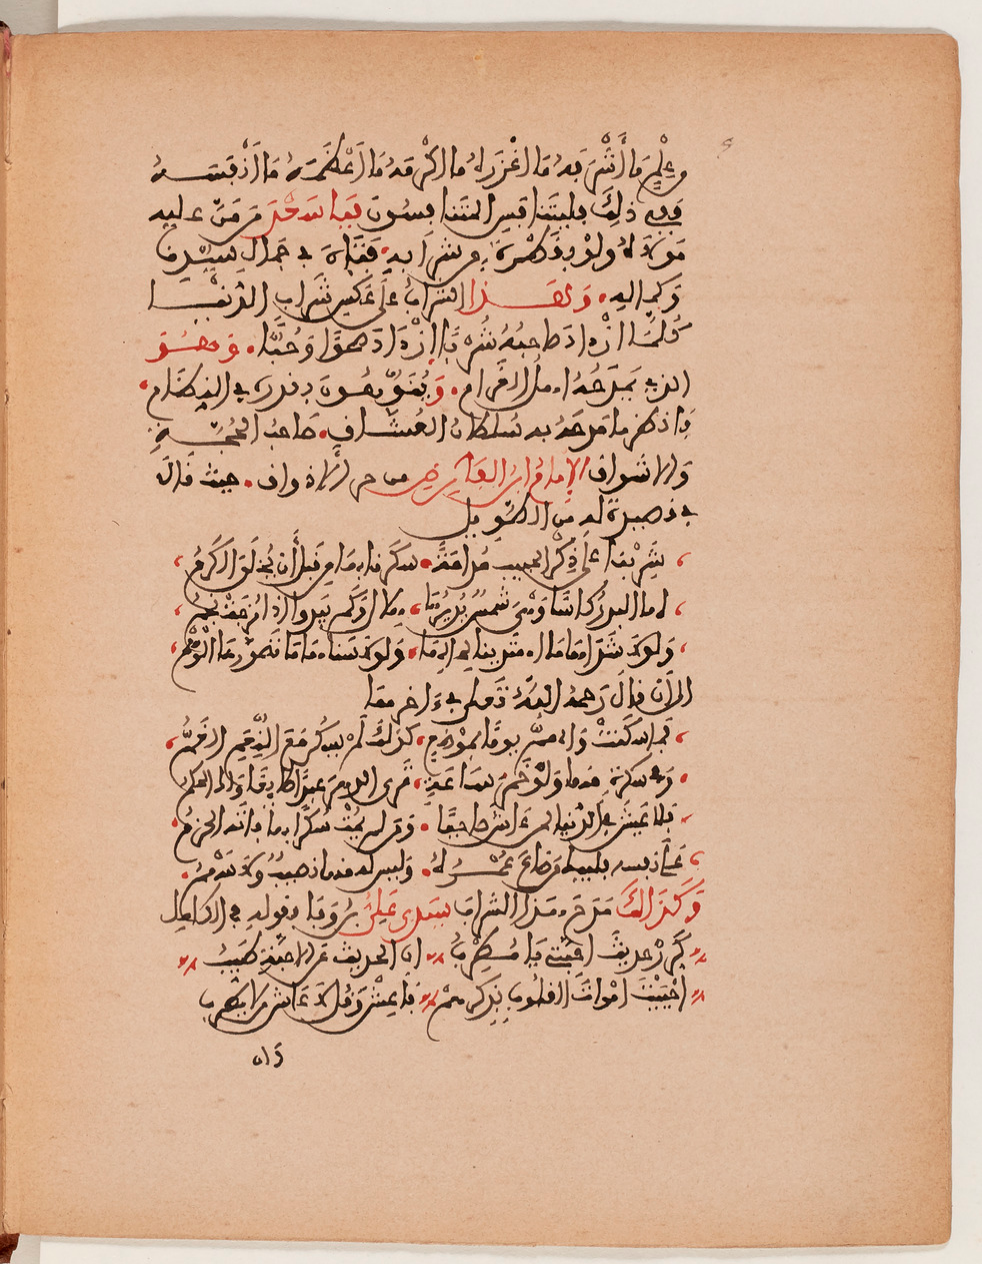 وعلم ما أشربه ما أغزره ما أكرمه ما أعظمه ما أنفسه
وفي ذلك فليتنافس المتنافسون فيا سعد من من عليه
مولاه ولو بقطرة من شرابه فتاه في جمال سيده
وكماله وهذا الشراب على عكس شراب الدنيا
كلما ازداد صاحبه شربا ازداد صحوا وحبا وهو
الذي يمدحه أهل الغرام ويتفوهون بذكره في النظام
فانظر ما مدحه به سلطان العشاق صاحب المحبة
والأشواق الإمام ابن الفارض من الأذواق حيث قال
في قصيدة له من الطويل
شربنا على ذكر الحبيب مدامة سكرنا بها من قبل أن يخلق الكرم
لها البدر كأس وهي شمس يديرها هلال وكم يبدو إذا مزجت نجم
ولولا شذاها ما اهتدينا لحانها ولولا سناها ما تصورها الوهم
إلى أن قال رحمه الله تعالى في آخرها
فما سكنت والهم يوما بموضع كذلك لم يسكن مع النغم الغم
وفي سكرة منها ولو عمر ساعة ترى الدهر عبدا طائعا ولك الحكم
فلا عيش في الدنيا لمن عاش صاحيا ومن لم يمت سكرا بها فاته الحزم
على نفسه فليبك من ضاع عمره وليس له منها نصيب ولا سهم
وكذلك مدح هذا الشراب سيدي علي بن وفا بقوله في الكامل
كرر حديث أحبتي يا مطربي إن الحديث عن الأحبة طيب
أحييت أموات القلوب بذكرهم
وان